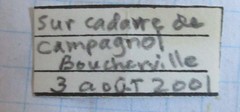 Sur cadavre de
Campagnol
Boucherville
3 août 2001